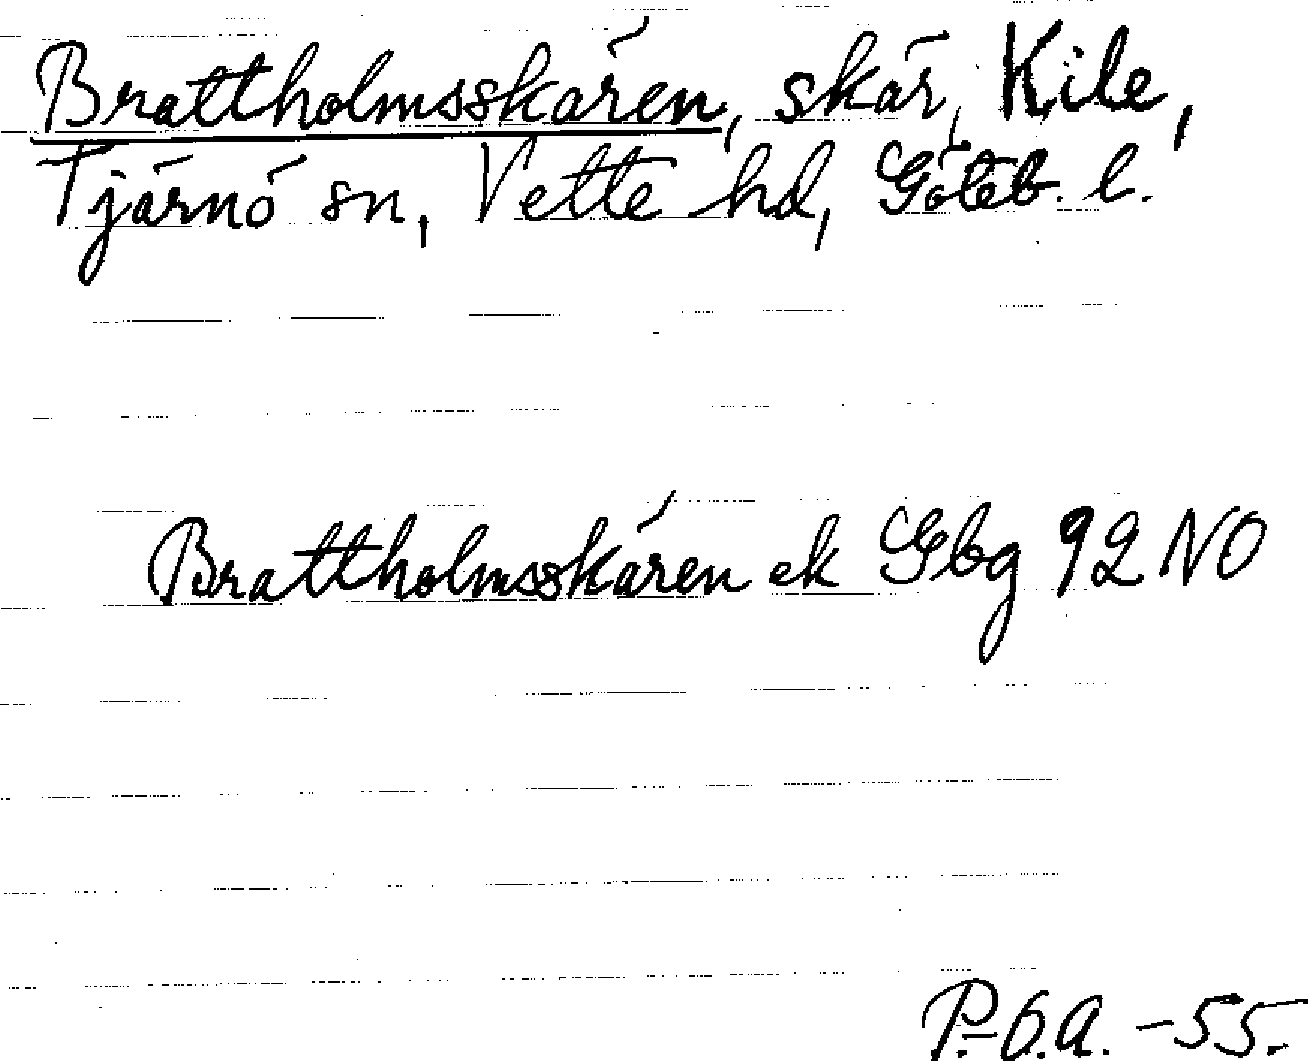 Brattholmsskären, skär, Kile,
Tjärnö sn, Vette hd, Göteb. l.
Brattholmsskären ek Gbg 92 NO
P.Ö.A. -55.